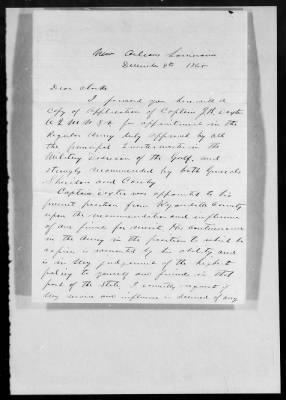 New Orleans Louisiana
December 9th 1865
Dear Clarke
I forward you herewith a
copy of Application of Captain J. H.
A. Q. M. for appointment in the
Regular Army duly approved by all
the principal Quartermasters in the
Military Division of the Gulf, and
strongly recommended by both Generals
Sheridan and Canby.
Captain was appointed to his
present position from Wyandotte County
upon the recommendation and influence
of our friends for merit. His continuance
in the Army in the position to which he
aspires is merited by his ability and
is in my judgement of the highest
policy to yourself and friends in that
part of the State. I earnestly request if
my service and influence is deemed of any